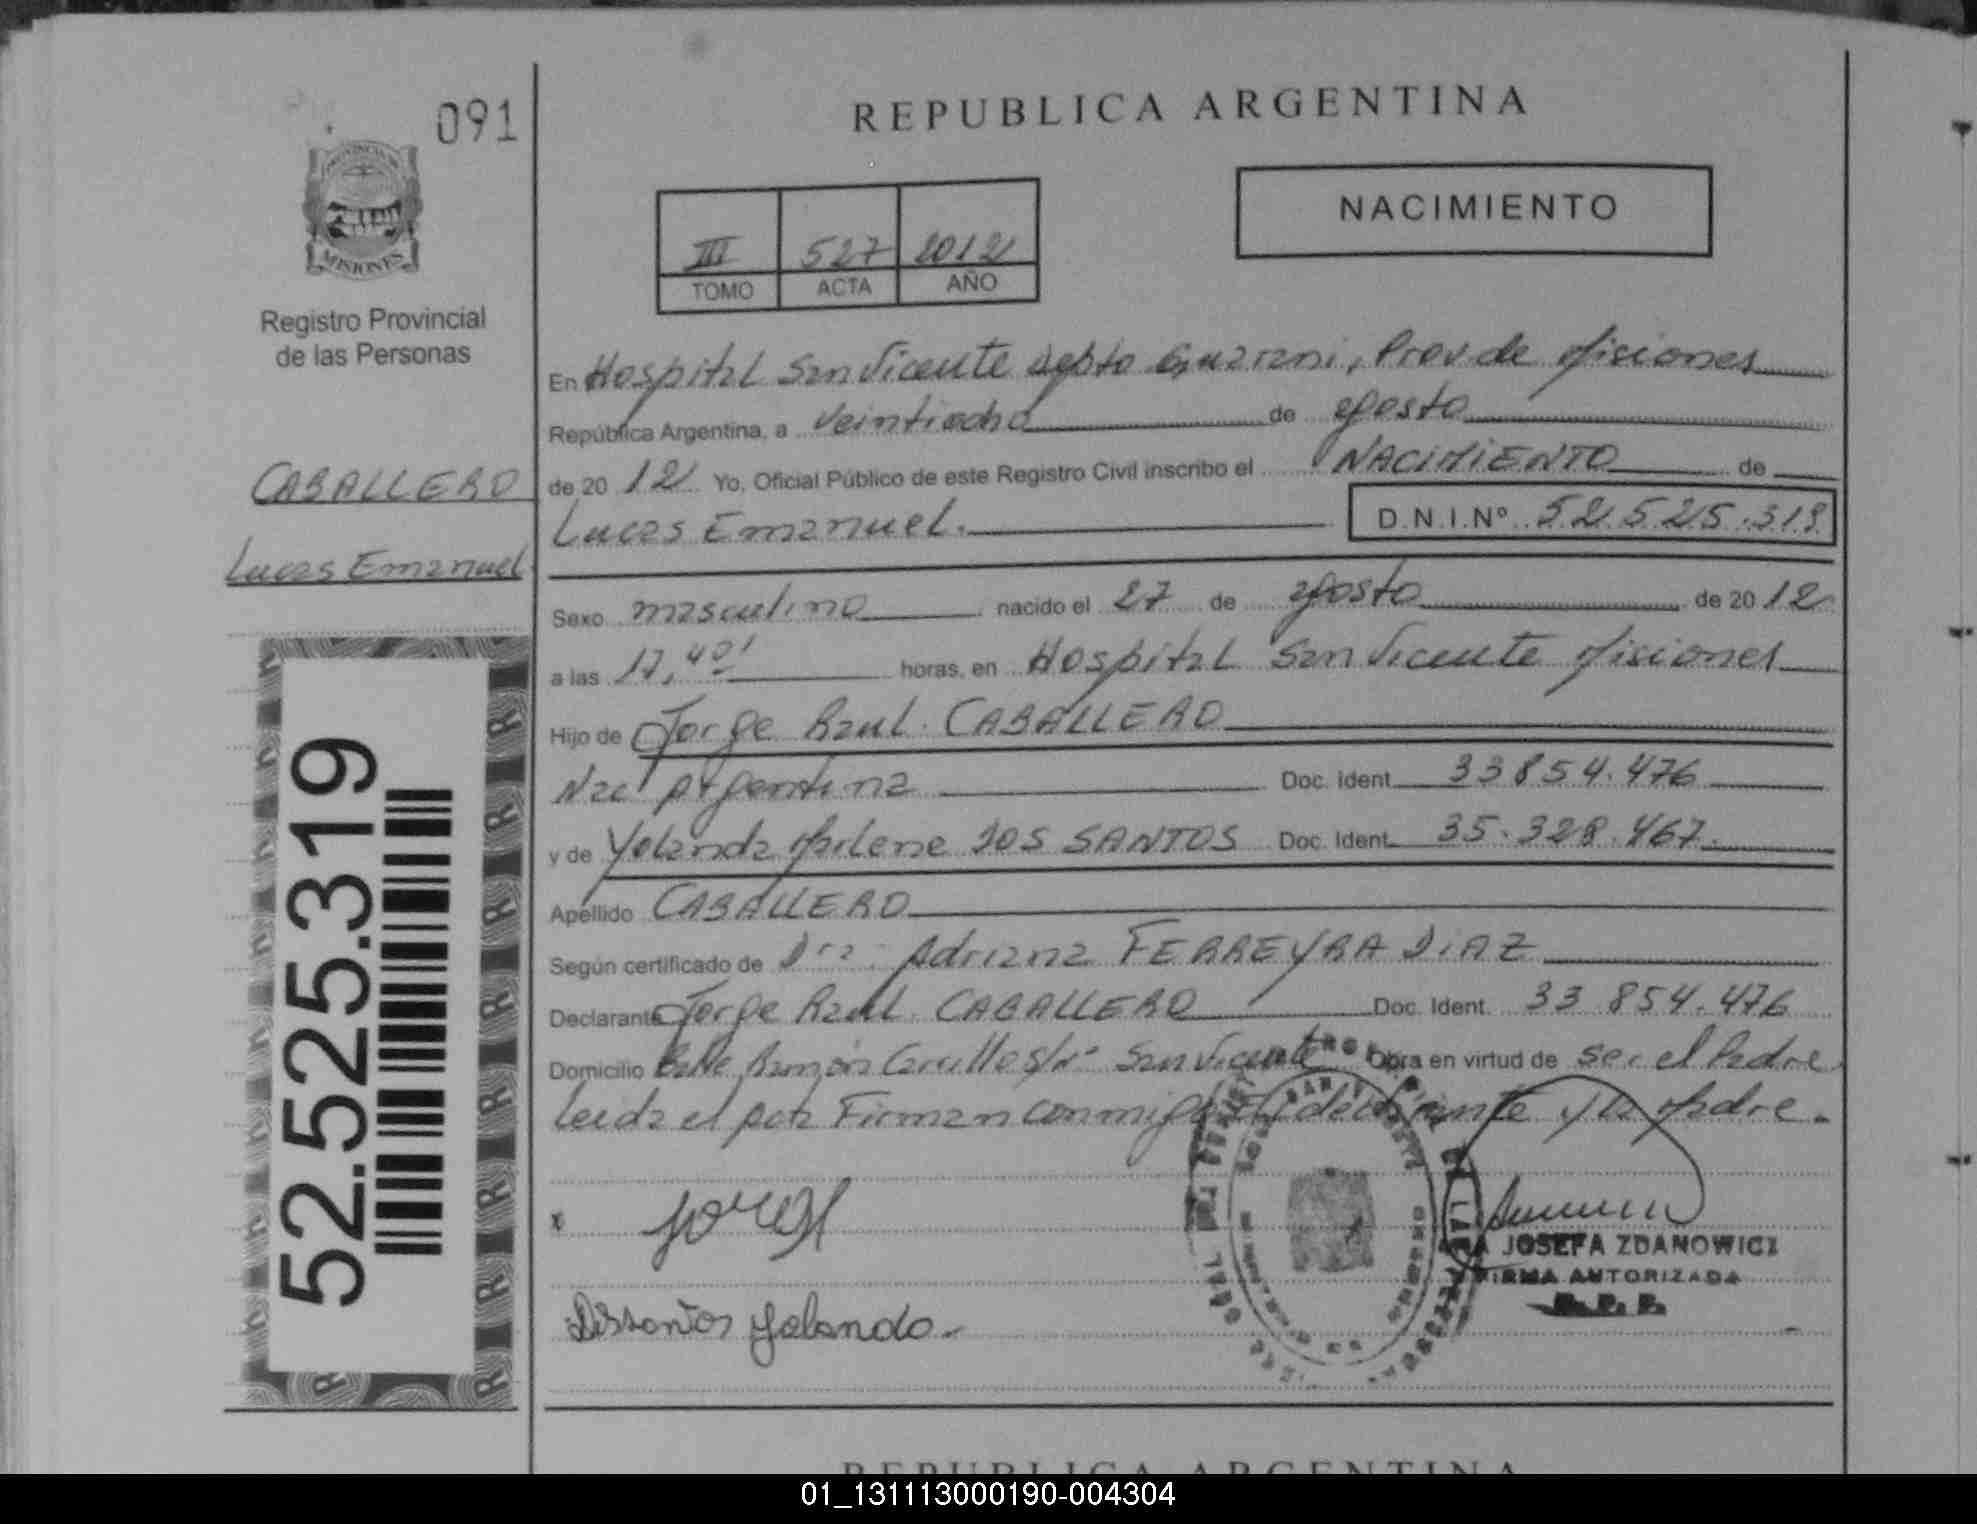 091
REPUBLICA ARGENTINA
PROVINCIA DE
MISIONES
Registro Provincial
de las Personas
NACIMIENTO
III 527 2012
TOMO ACTA AÑO
CABALLERO
Lucas Emanuel
52.525.319
En Hospital San Vicente Depto Guarani, Prov. de Misiones
República Argentina, a veintiocho de agosto
de 2012 Yo, Oficial Público de este Registro Civil inscribo el NACIMIENTO de
Lucas Emanuel. D.N.I.Nº 52.525.319
Sexo masculino nacido el 27 de agosto de 2012
a las 17,40' horas, en Hospital San Vicente Misiones
Hijo de Jorge Raul CABALLERO
Nac Argentina Doc. Ident. 33854.476
y de Yolanda Marlene DOS SANTOS Doc. Ident. 35.328.467.
Apellido CABALLERO
Según certificado de Dra: Adriana FERREYRA DIAZ
Declarante Jorge Raul CABALLERO Doc. Ident. 33 854.476
Domicilio Calle Ramón Carrillo s/nº San Vicente Obra en virtud de ser el Padre
Leida el acta Firman conmigo El declarante y la Madre.
x Jorge
Dossantos Yolanda.
JOSEFA ZDANOWICZ
FIRMA AUTORIZADA
R. P. P.
REPUBLICA ARGENTINA
01_131113000190-004304